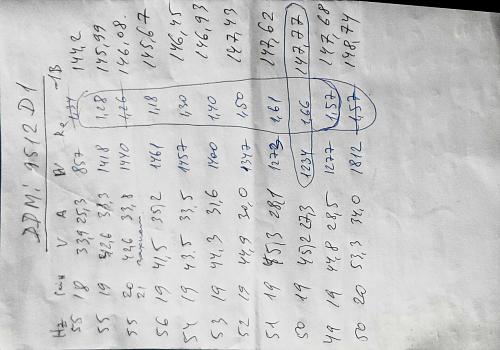 DDMi 9512 D1
Hz сек V A W Rz -1B
55 18 33,9 25,3 857 144,2
55 19 42,6 33,3 1418 1,28 145,99
55 20 42,6 33,8 1440 1,26 146,08.
21
56 19 41,5 35,2 1461 1,18 145,67
54 19 43,5 33,5 1457 1,30 146,45
53 19 44,3 31,6 1400 1,40 146,93
52 19 44,9 30,0 1347 1,50 147,43
51 19 45,3 28,1 1273 1,61 147,62
50 19 45,2 27,3 1234 1,66 147,77
49 19 44,8 28,5 1277 1,57 147,68
50 20 53,3 34,0 1812 1,57 148,74